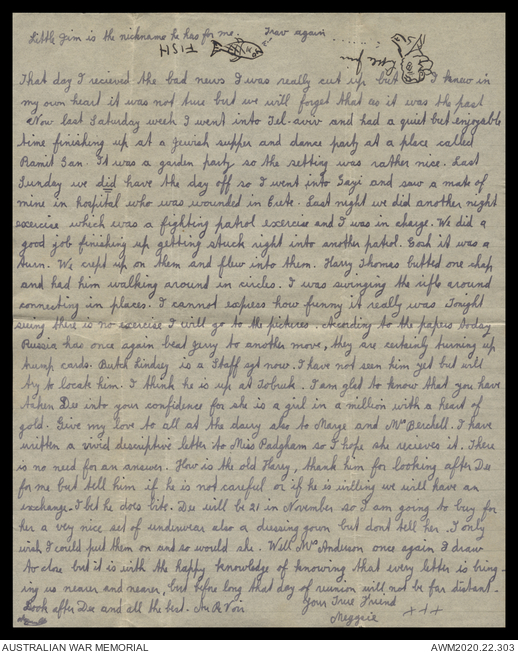 Little Jim is the nickname he has for me. Trav again ......
FISH
That day I recieved the bad news I was really cut up but I knew in
my own heart it was not ture but we will forget that as it was the past
Now last Saturday week I went into Tel-aviv and had a quiet but enjoyable
time finishing up at a Jewish supper and dance party at a place called
Ramit Gan. It was a garden party so the setting was rather nice. Last
Sunday we did have the day off so I went into Gaza and saw a mate of
mine in hospital who was wounded in Crete. Last night we did another night
exercise which was a fighting patrol exercise and I was in charge. We did a
good job finishing up getting stuck right into another patrol. Gosh it was a
turn. We crept up on them and flew into them. Harry Thomas butted one chap
and had him walking around in circles. I was swinging the rifle around
connecting in places. I cannot express how funny it really was. Tonight
seeing there is no exercise I will go to the pictures. According to the papers today
Russia has once again beat Jerry to another move, they are certainly turning up
trump cards. Butch Lindsey is a Staff sgt now. I have not seen him yet but will
try to locate him. I think he is up at Tobruk. I am glad to know that you have
taken Dee into your confidence for she is a girl in a million with a heart of
gold. Give my love to all at the dairy also to Marge and Mrs Berchell. I have
written a vivid descriptive letter to Miss Padgham so I hope she recieves it. There
is no need for an answer. How is the old Harry, thank him for looking after Dee
for me but tell him if he is not careful or if he is willing we will have an
exchange. I bet he does bite. Dee will be 21 in November so I am going to buy for
her a very nice set of underwear also a dressing gown but dont tell her. I only
wish I could put them on and so would she. Well Mrs Anderson once again I draw
to close but it is with the happy knowledge of knowing that every letter is bring-
ing us nearer and nearer, but before long that day of reunion will not be far distant.
Look after Dee and all the best. Au R. Voir
Your True Friend
Meggsie
+++
AUSTRALIAN WAR MEMORIAL
AWM2020.22.303